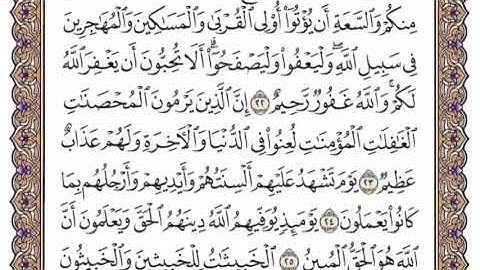 مِنكُمْ وَالسَّعَةِ أَن يُؤْتُوا أُولِي الْقُرْبَىٰ وَالْمَسَاكِينَ وَالْمُهَاجِرِينَ
فِي سَبِيلِ اللَّهِ ۖ وَلْيَعْفُوا وَلْيَصْفَحُوا ۗ أَلَا تُحِبُّونَ أَن يَغْفِرَ اللَّهُ
لَكُمْ ۗ وَاللَّهُ غَفُورٌ رَّحِيمٌ ٢٢ إِنَّ الَّذِينَ يَرْمُونَ الْمُحْصَنَاتِ
الْغَافِلَاتِ الْمُؤْمِنَاتِ لُعِنُوا فِي الدُّنْيَا وَالْآخِرَةِ وَلَهُمْ عَذَابٌ
عَظِيمٌ ٢٣ يَوْمَ تَشْهَدُ عَلَيْهِمْ أَلْسِنَتُهُمْ وَأَيْدِيهِمْ وَأَرْجُلُهُم بِمَا
كَانُوا يَعْمَلُونَ ٢٤ يَوْمَئِذٍ يُوَفِّيهِمُ اللَّهُ دِينَهُمُ الْحَقَّ وَيَعْلَمُونَ أَنَّ
اللَّهَ هُوَ الْحَقُّ الْمُبِينُ ٢٥ الْخَبِيثَاتُ لِلْخَبِيثِينَ وَالْخَبِيثُونَ